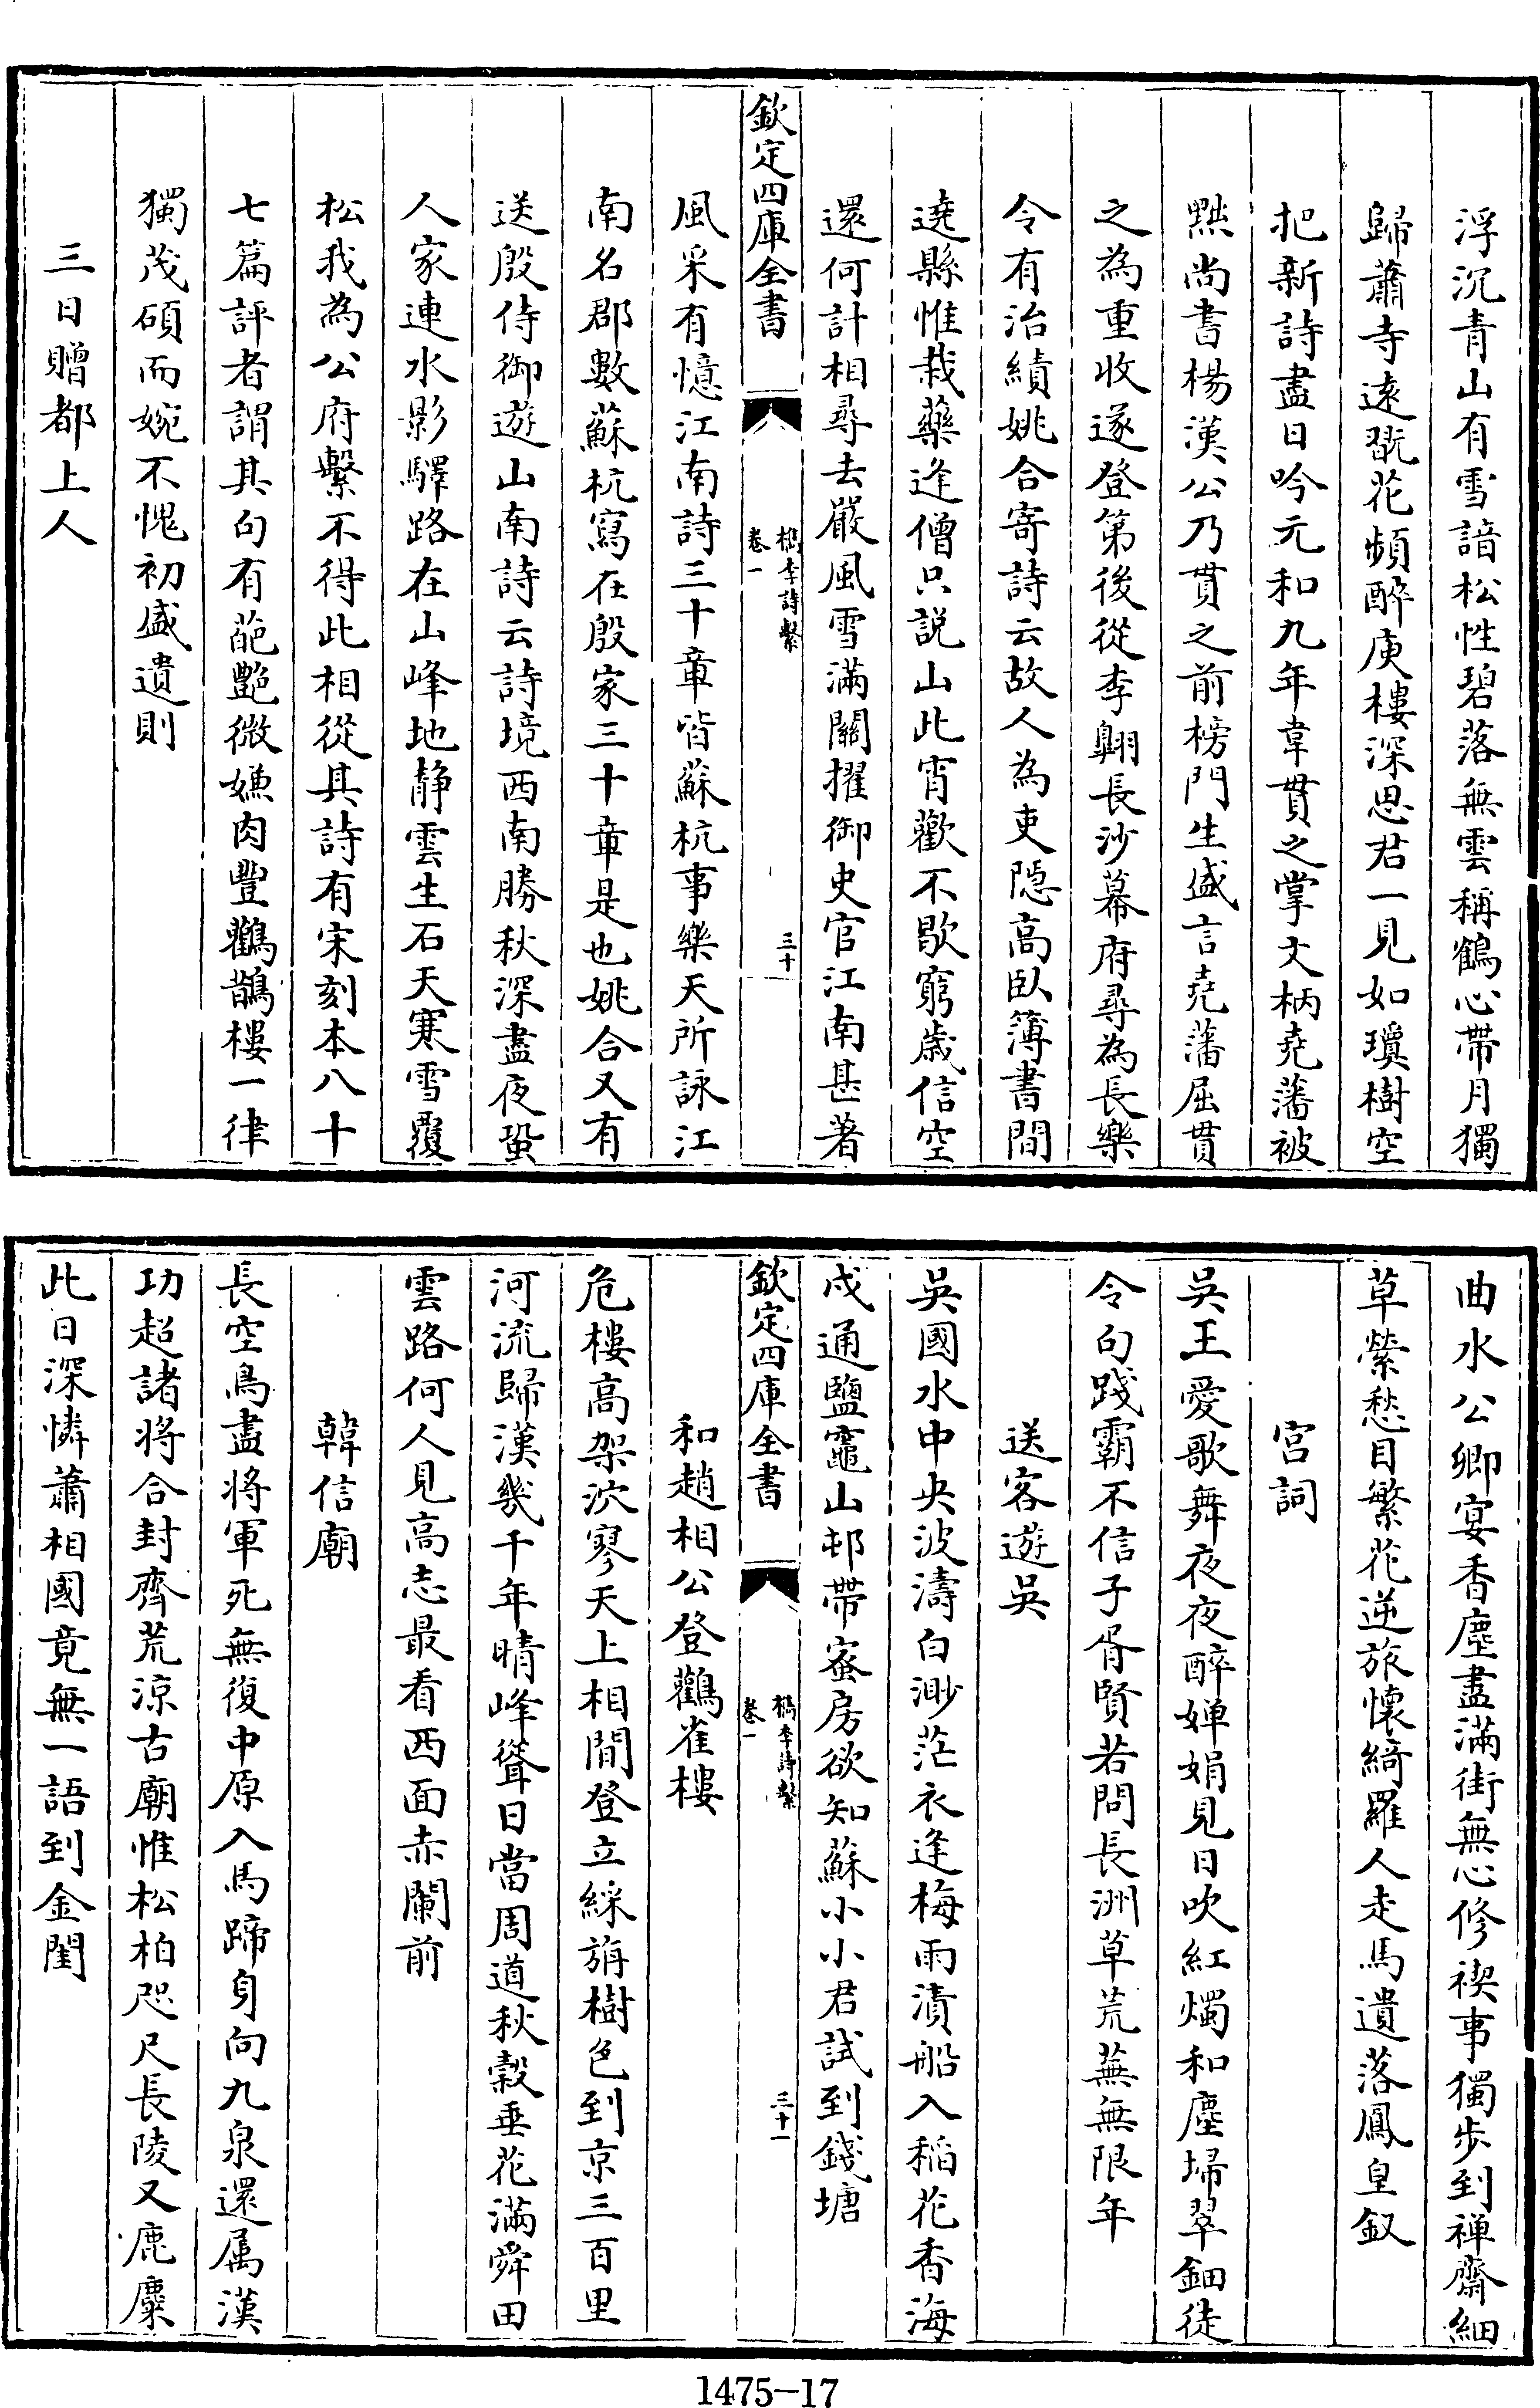 浮沉青山有雪諳松性碧落無雲稱鶴心帶月獨
歸蕭寺遠翫花頻醉庾樓深思君一見如瓊樹空
把新詩盡日吟元和九年韋貫之掌文柄堯藩被
黜尚書楊漢公乃貫之前榜門生盛言堯藩屈貫
之為重收遂登第後從李翺長沙幕府尋為長樂
令有治績姚合寄詩云故人為吏隱高臥簿書間
遶縣惟栽藥逢僧只説山此宵歡不歇窮歲信空
還何計相尋去嚴風雪滿關擢御史官江南甚著
欽定四庫全書
檇李詩繫
卷一
三十
風采有憶江南詩三十章皆蘇杭事樂天所詠江
南名郡數蘇杭寫在殷家三十章是也姚合又有
送殷侍御遊山南詩云詩境西南勝秋深盡夜蛩
人家連水影驛路在山峰地靜雲生石天寒雪覆
松我為公府繫不得此相從其詩有宋刻本八十
七篇評者謂其句有葩艷微嫌肉豐鸛鵲樓一律
獨茂碩而婉不愧初盛遺則
三日贈都上人
曲水公卿宴香塵盡滿街無心修禊事獨步到禪齋細
草縈愁目繁花逆旅懷綺羅人走馬遺落鳳皇釵
宮詞
吳王愛歌舞夜夜醉嬋娟見日吹紅燭和塵埽翠鈿徒
令句踐霸不信子胥賢若問長洲草荒蕪無限年
送客遊吳
吳國水中央波濤白渺茫衣逢梅雨漬船入稻花香海
戍通鹽竈山邨帶蜜房欲知蘇小小君試到錢塘
欽定四庫全書
檇李詩繫
卷一
三十一
和趙相公登鸛雀樓
危樓高架泬寥天上相閒登立綵旃樹色到京三百里
河流歸漢幾千年晴峰聳日當周道秋穀垂花滿舜田
雲路何人見高志最看西面赤闌前
韓信廟
長空鳥盡將軍死無復中原入馬蹄身向九泉還屬漢
功超諸將合封齊荒涼古廟惟松柏咫尺長陵又鹿麋
此日深憐蕭相國竟無一語到金閨
1475-17